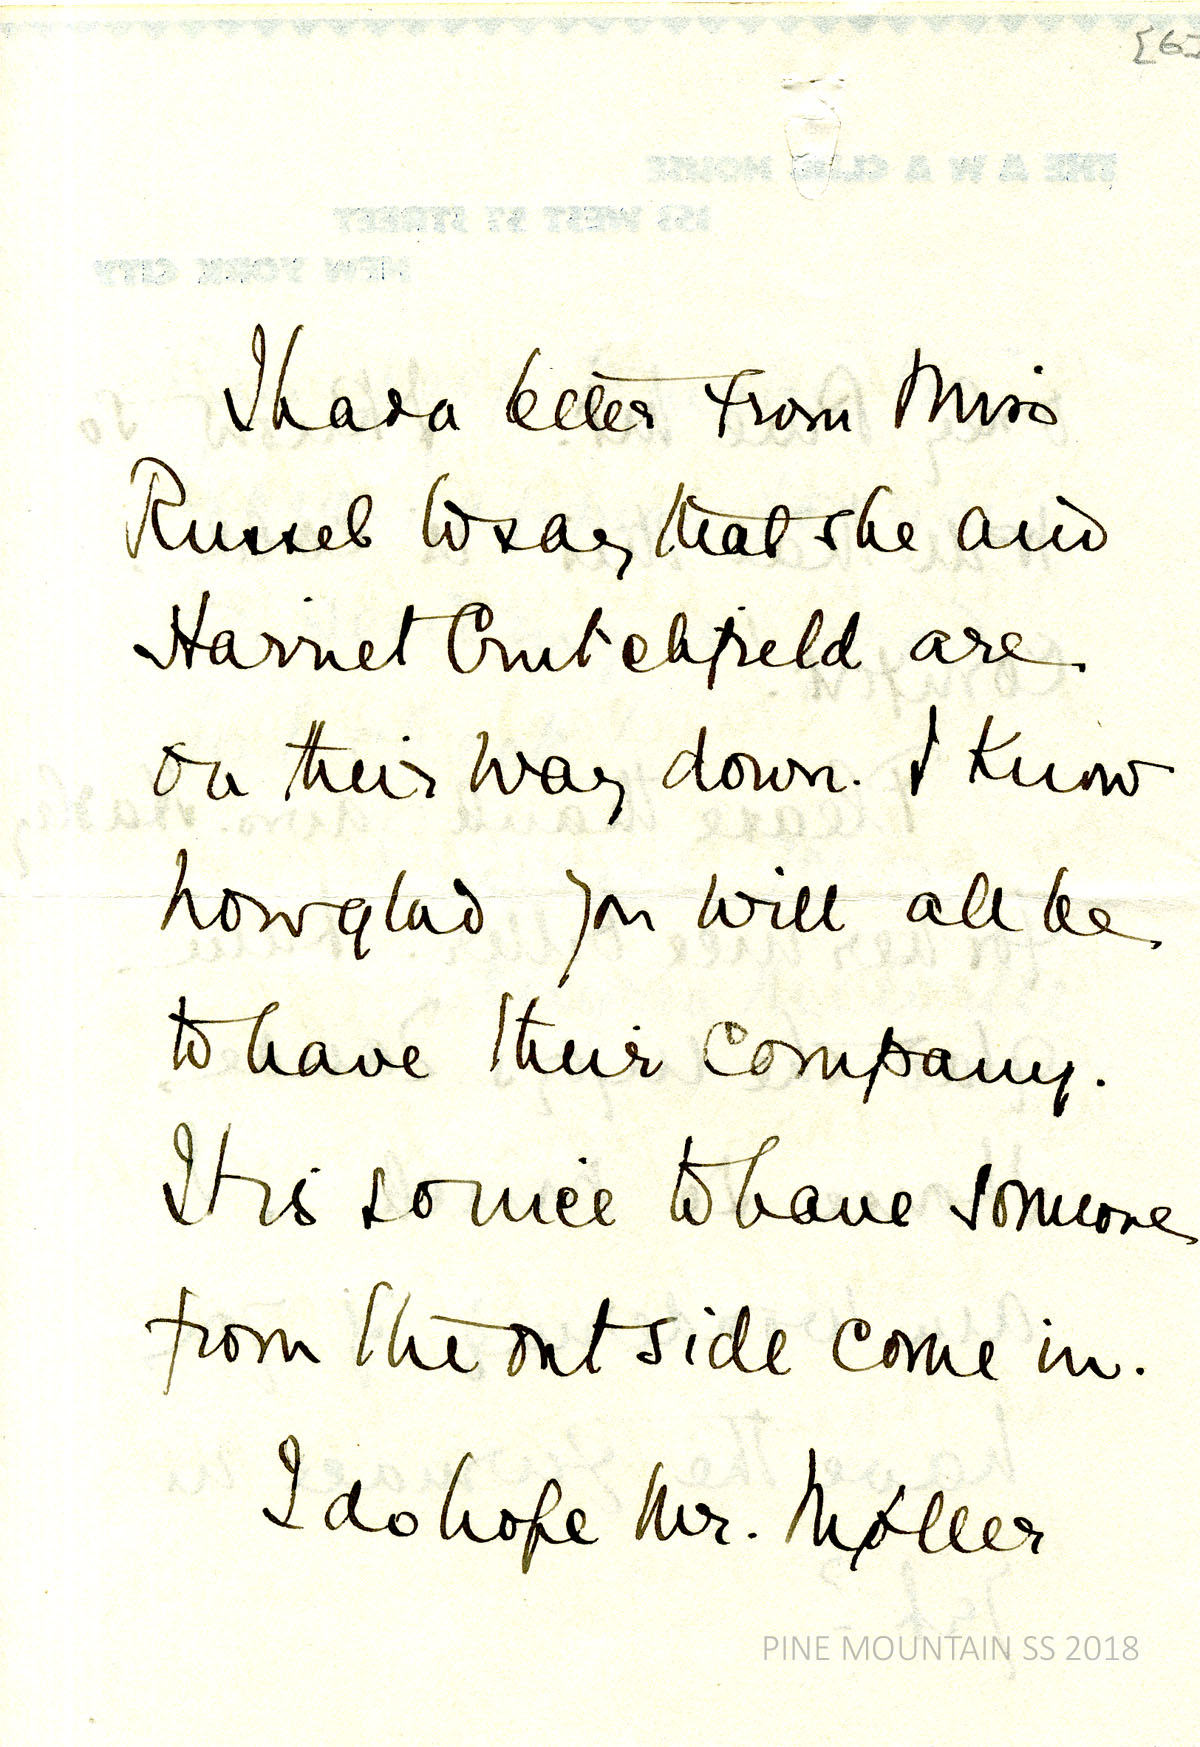 [6]
THE A W A CLUB HOUSE
353 WEST 57 STREET
NEW YORK CITY
I had a letter from Miss
Russel to say that she and
Harriet Crutchfield are
on their way down. I know
how glad you will all be
to have their company.
It is so nice to have someone
from the outside come in.
I do hope Mr. Moller
PINE MOUNTAIN SS 2018